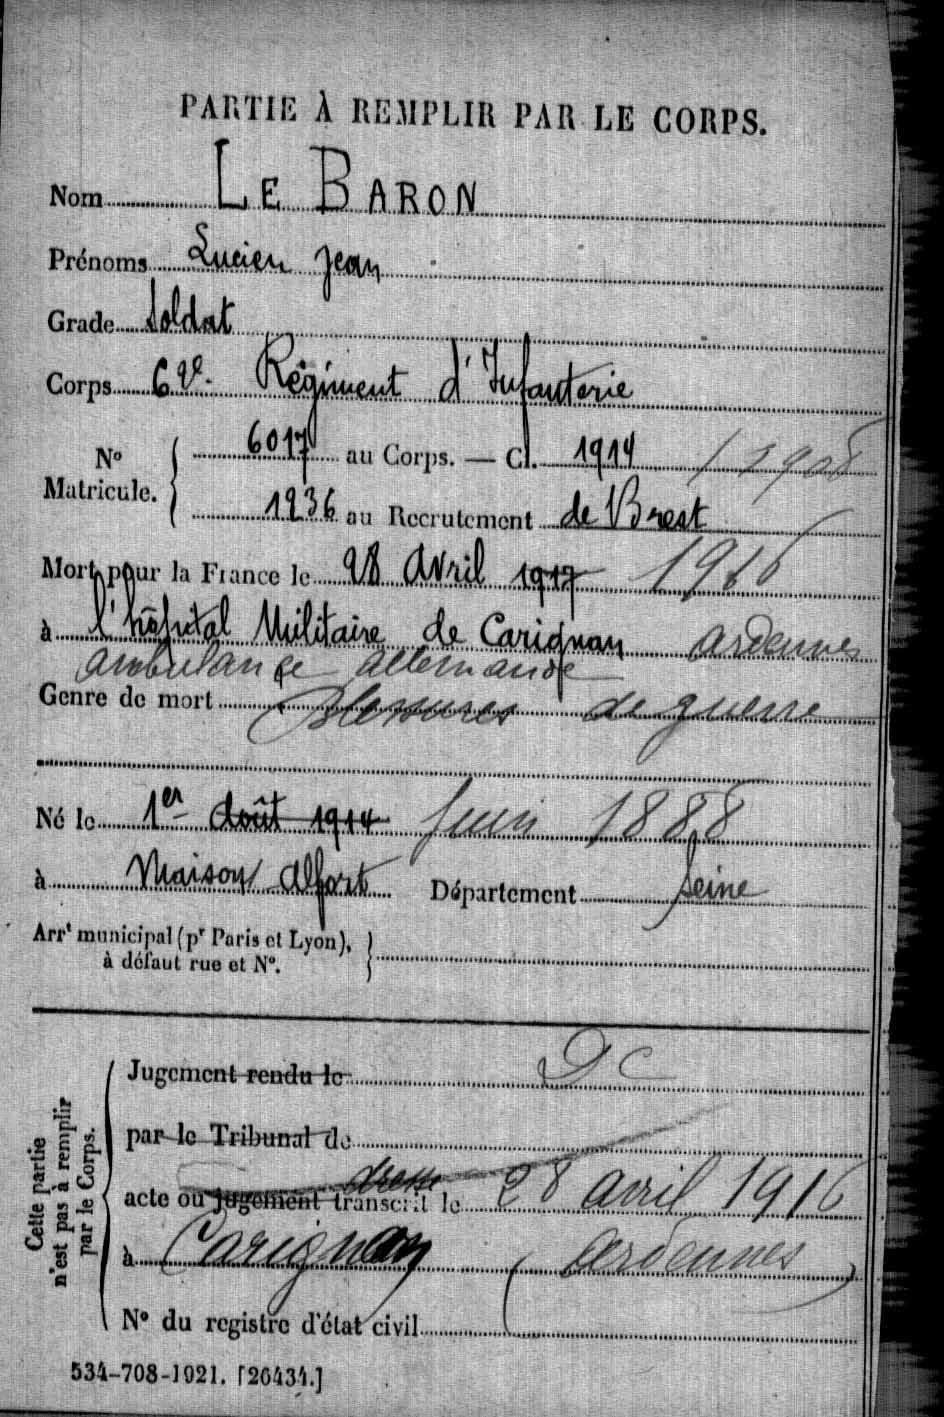 PARTIE À REMPLIR PAR LE CORPS.
Nom LE BARON
Prénoms Lucien Jean
Grade Soldat
Corps 6 2e. Régiment d'Infanterie
No Matricule. { 6017 au Corps. — Cl. 1914 / 1908
1236 au Recrutement de Brest
Mort pour la France le 28 Avril 1917 1916
à l'hôpital Militaire de Carignan Ardennes
ambulance allemande
Genre de mort Blessures de guerre
Né le 1er Août 1914 Juin 1888
à Maison Alfort Département Seine
Arrt municipal (pr Paris et Lyon), }
à défaut rue et No.
Cette partie n'est pas à remplir par le Corps.
Jugement rendu le DC
par le Tribunal de
dressé
acte ou jugement transcrit le 28 avril 1916
à Carignan (Ardennes)
No du registre d'état civil
534-708-1921. [26434.]